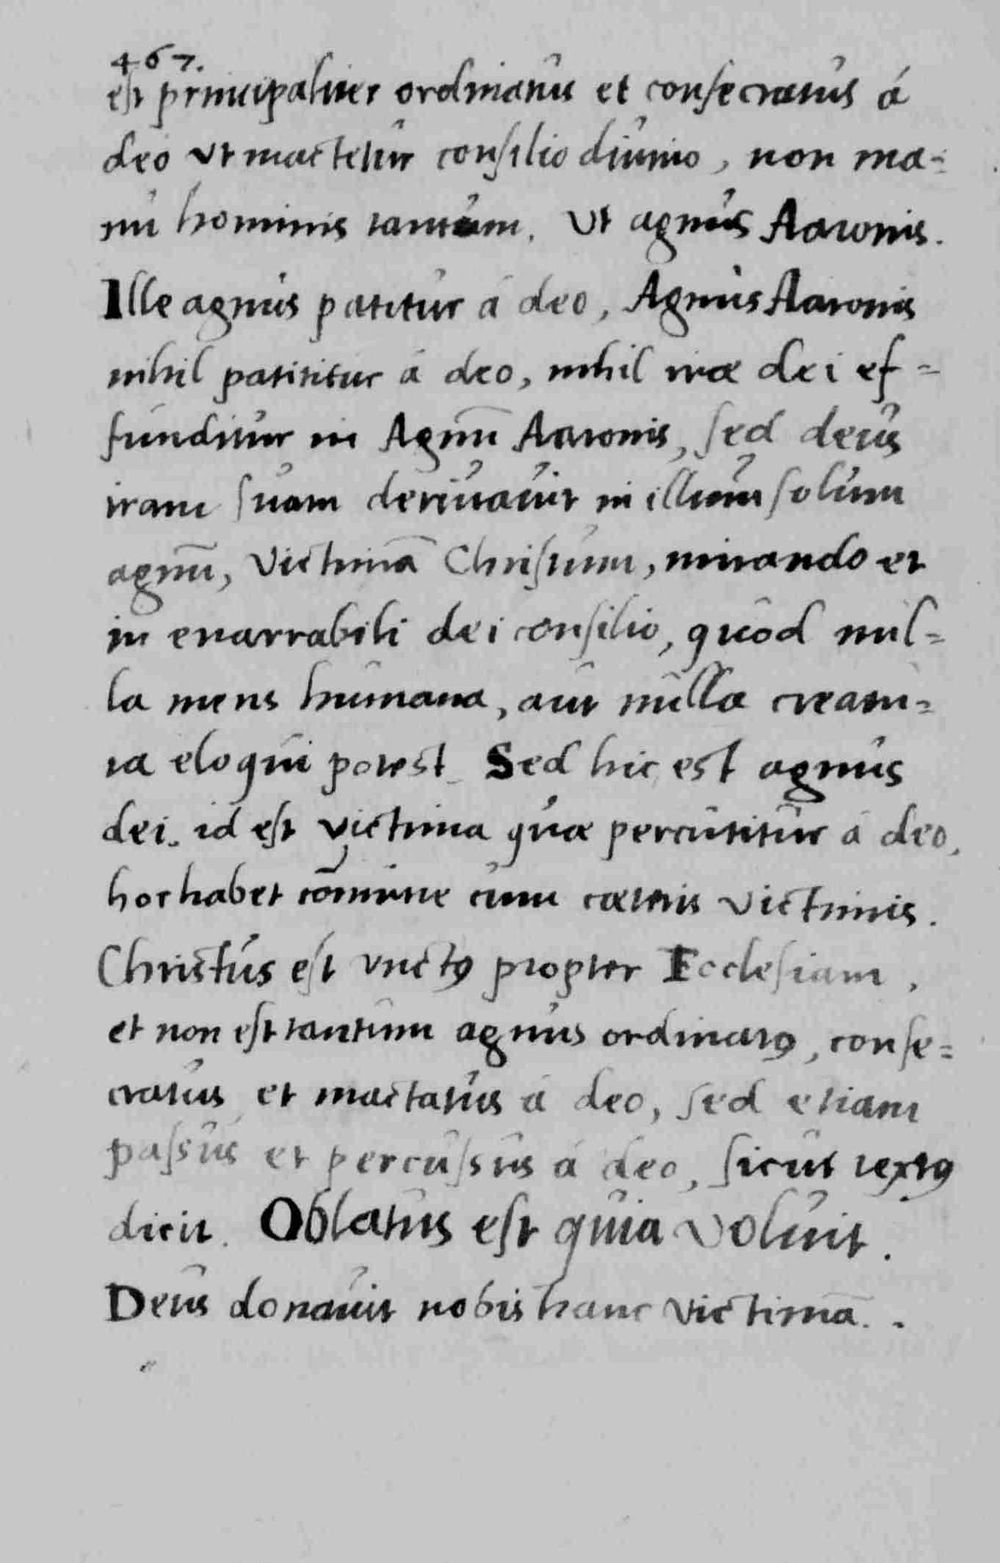 467.
est principaliter ordinatus et consecratus á
deo vt mactetur consilio diuino, non ma=
nu hominis tantum. Vt agnus Aaronis.
Ille agnus patitur á deo, Agnus Aaronis
nihil patititur á deo, nihil iræ dei ef=
funditur in Agnū Aaronis, sed deus
iram suam deriuauit in illum solum
agnū, Victimā Christum, mirando et
in enarrabili dei consilio, quod nul=
la mens humana, aut nulla creatu=
ra eloqui potest. Sed hic est agnus
dei. id est victima quæ percutitur á deo,
hoc habet cōmune cum cæteris victimis.
Christus est vnctꝰ propter Ecclesiam,
et non est tantum agnus ordinatꝰ, conse=
cratus et mactatus á deo, sed etiam
passus et percussus á deo, sicut textꝰ
dicit. Oblatus est quia voluit.
Deus donauit nobis hanc victimā.